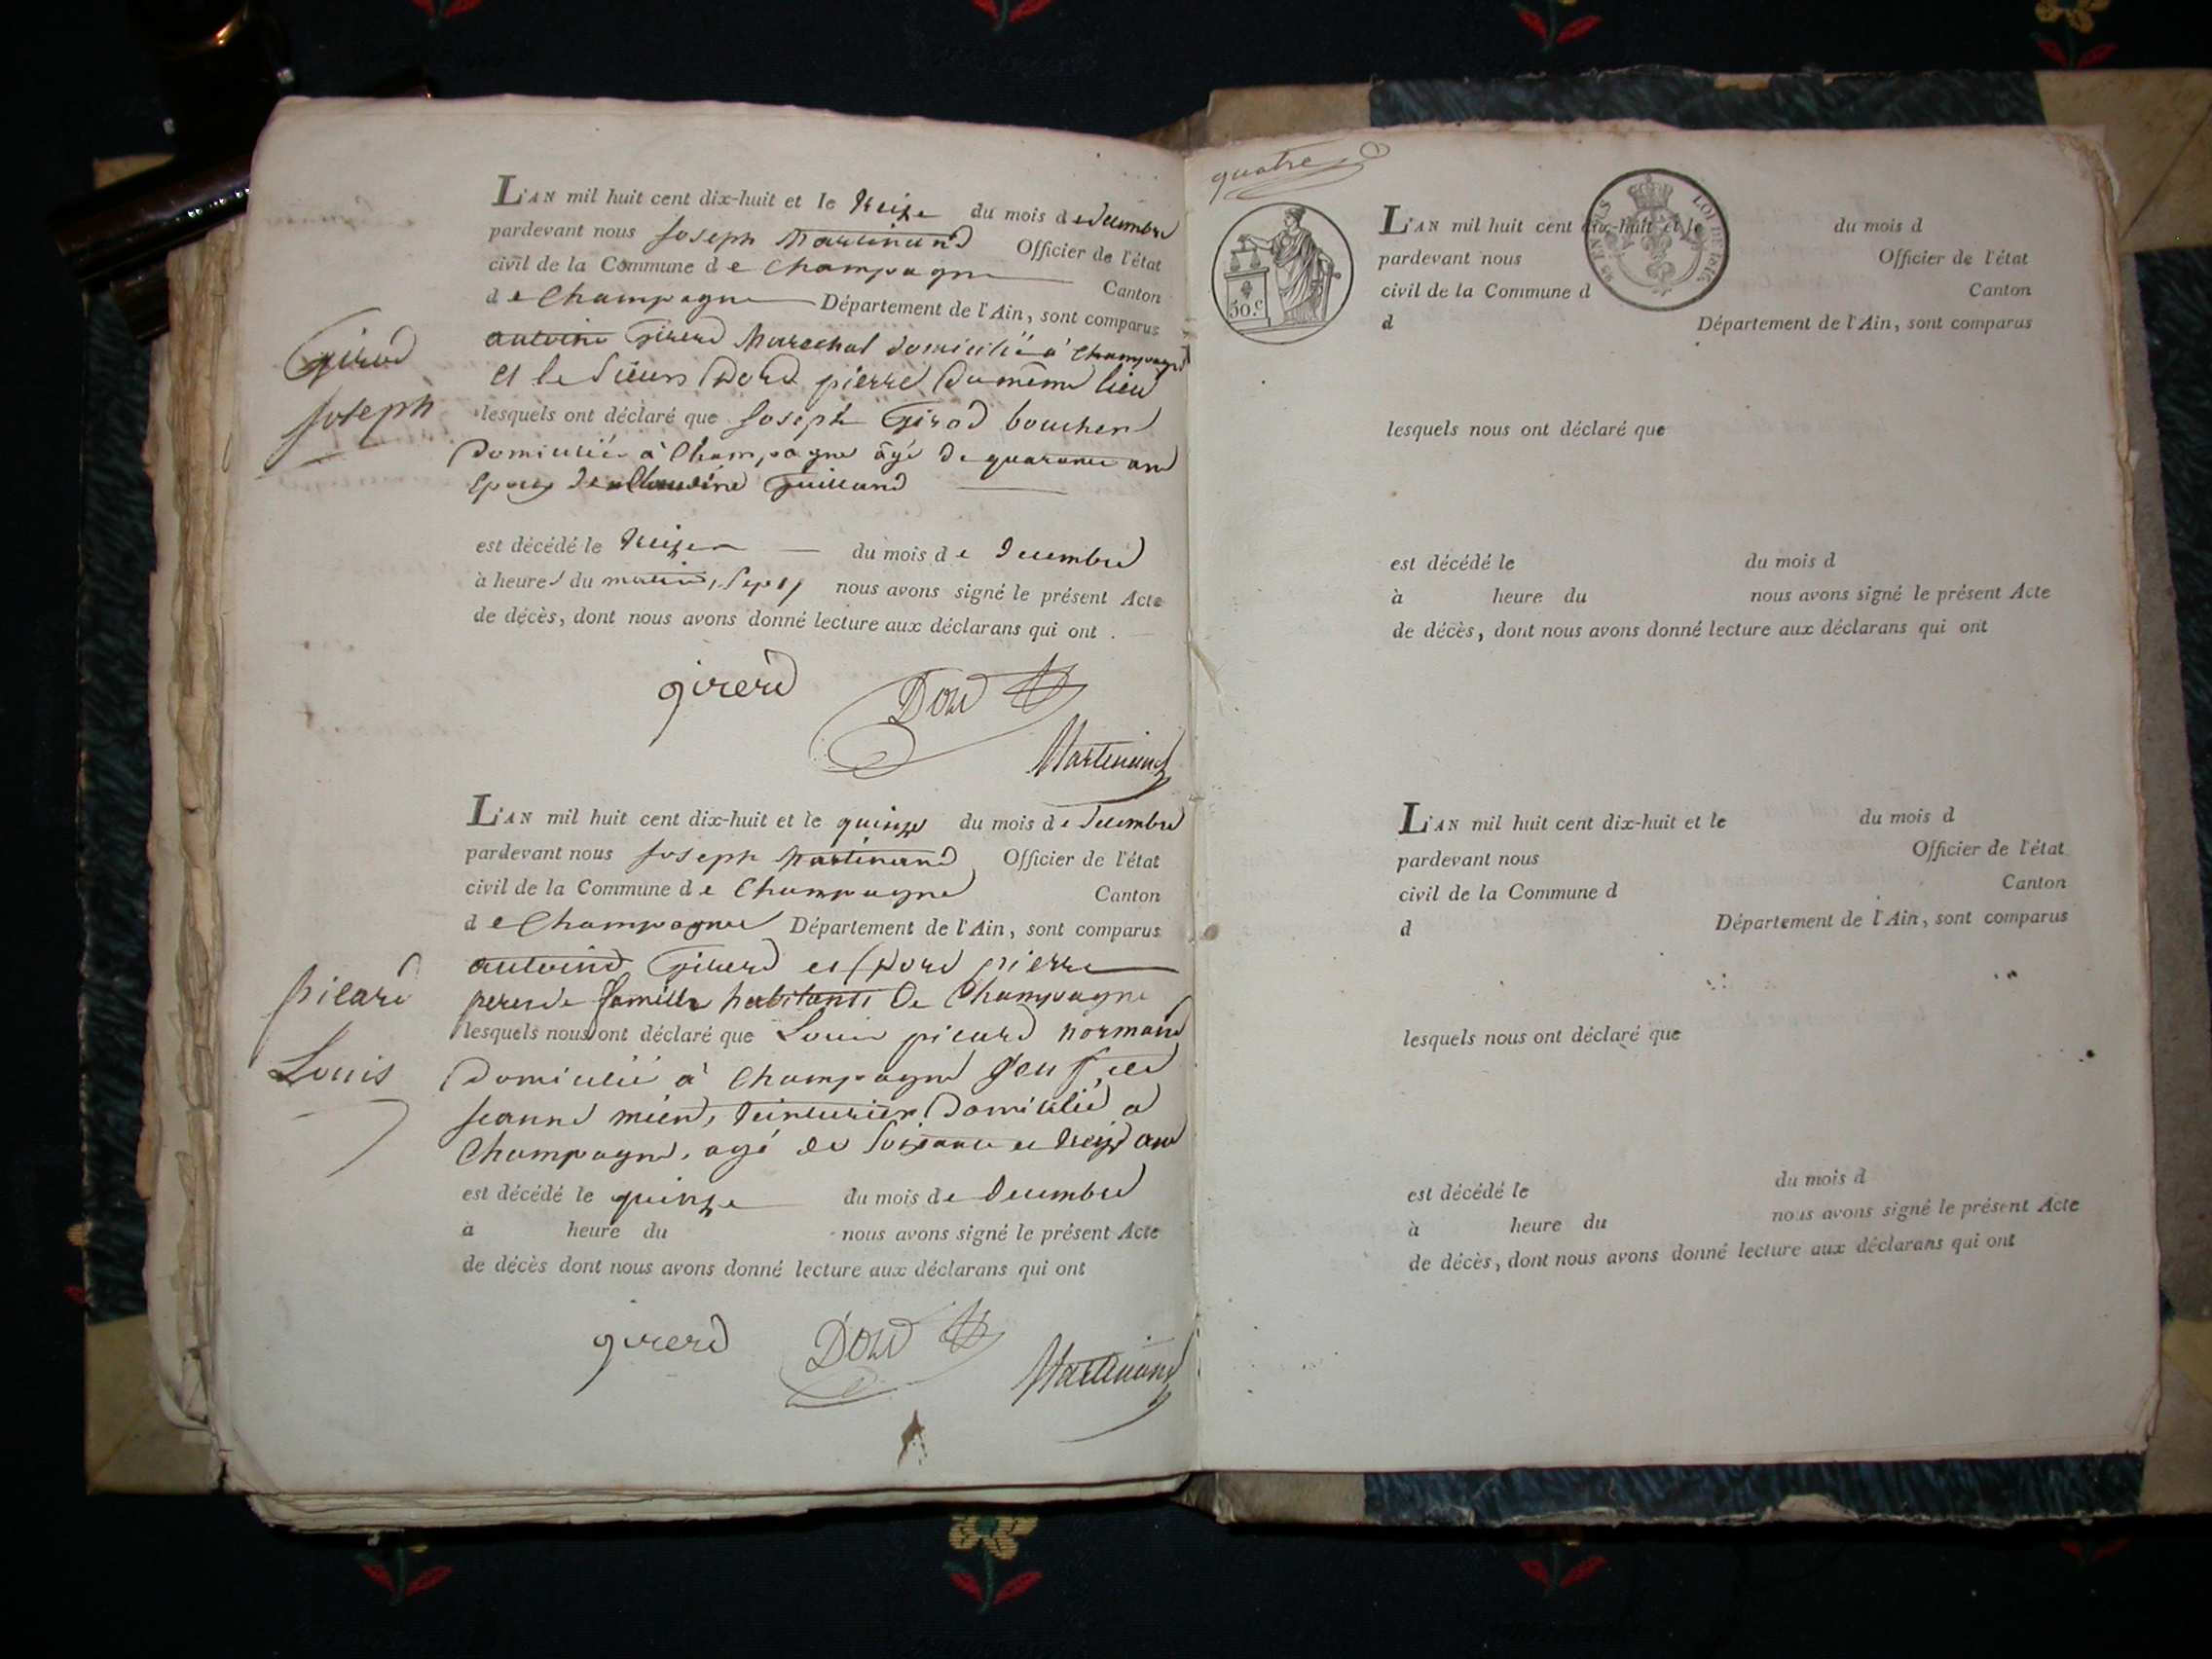 L'AN mil huit cent dix-huit et le treize du mois de decembre
pardevant nous Joseph Martinand Officier de l'état
civil de la Commune de Champagne Canton
de Champagne Département de l'Ain, sont comparus
antoine Girerd Marechal domicilié à Champagne
et le Sieur Dord pierre du même lieu
Girod
Joseph
lesquels ont déclaré que Joseph Girod boucher
Domicilié à Champagne âgé de quarante ans
Epoux de Claudine Guilland
est décédé le treize du mois de decembre
à heures du matin, Sept, nous avons signé le présent Acte
de décès, dont nous avons donné lecture aux déclarans qui ont .
girerd Dord Martinand
L'AN mil huit cent dix-huit et le quinze du mois de decembre
pardevant nous Joseph Martinand Officier de l'état
civil de la Commune de Champagne Canton
de Champagne Département de l'Ain, sont comparus
antoine Girerd et Dord pierre
peres de famille habitants de Champagne
picard
Louis
lesquels nous ont déclaré que Louis picard normand
Domicilié à Champagne
Jeanne teinturier Domicilié a
Champagne, agé de Soixante et treize ans
est décédé le quinze du mois de decembre
à heure du nous avons signé le présent Acte
de décès dont nous avons donné lecture aux déclarans qui ont
girerd Dord Martinand
quatre
50.c
LOI DE 1816
L'AN mil huit cent dix-huit et le du mois d
pardevant nous Officier de l'état
civil de la Commune d Canton
d Département de l'Ain, sont comparus
lesquels nous ont déclaré que
est décédé le du mois d
à heure du nous avons signé le présent Acte
de décès, dont nous avons donné lecture aux déclarans qui ont
L'AN mil huit cent dix-huit et le du mois d
pardevant nous Officier de l'état
civil de la Commune d Canton
d Département de l'Ain, sont comparus
lesquels nous ont déclaré que
est décédé le du mois d
à heure du nous avons signé le présent Acte
de décès, dont nous avons donné lecture aux déclarans qui ont